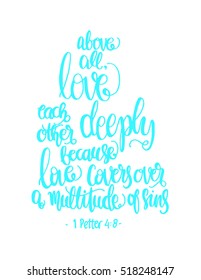 above
all,
love
each
other deeply
because
love covers over
a multitude of sins
- 1 Petter 4:8 -
shutterstock
518248147